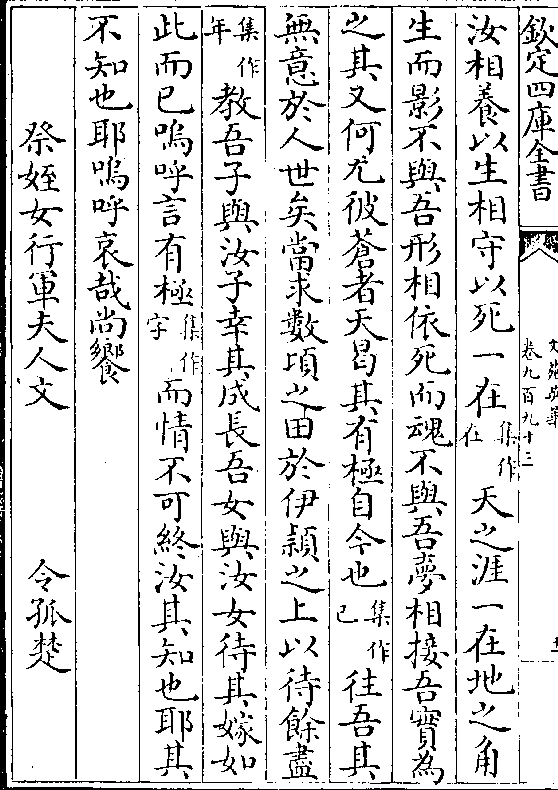 欽定四庫全書
文苑英華
卷九百九十三
汝相養以生相守以死一在集作在天之涯一在地之角
生而影不與吾形相依死而魂不與吾夢相接吾實為
之其又何尤彼蒼者天曷其有極自今也集作已往吾其
無意於人世矣當求數頃之田於伊潁之上以待餘盡
集作年教吾子與汝子幸其成長吾女與汝女待其嫁如
此而已嗚呼言有極集作字而情不可終汝其知也耶其
不知也耶嗚呼哀哉尚饗
祭姪女行軍夫人文 令孤楚